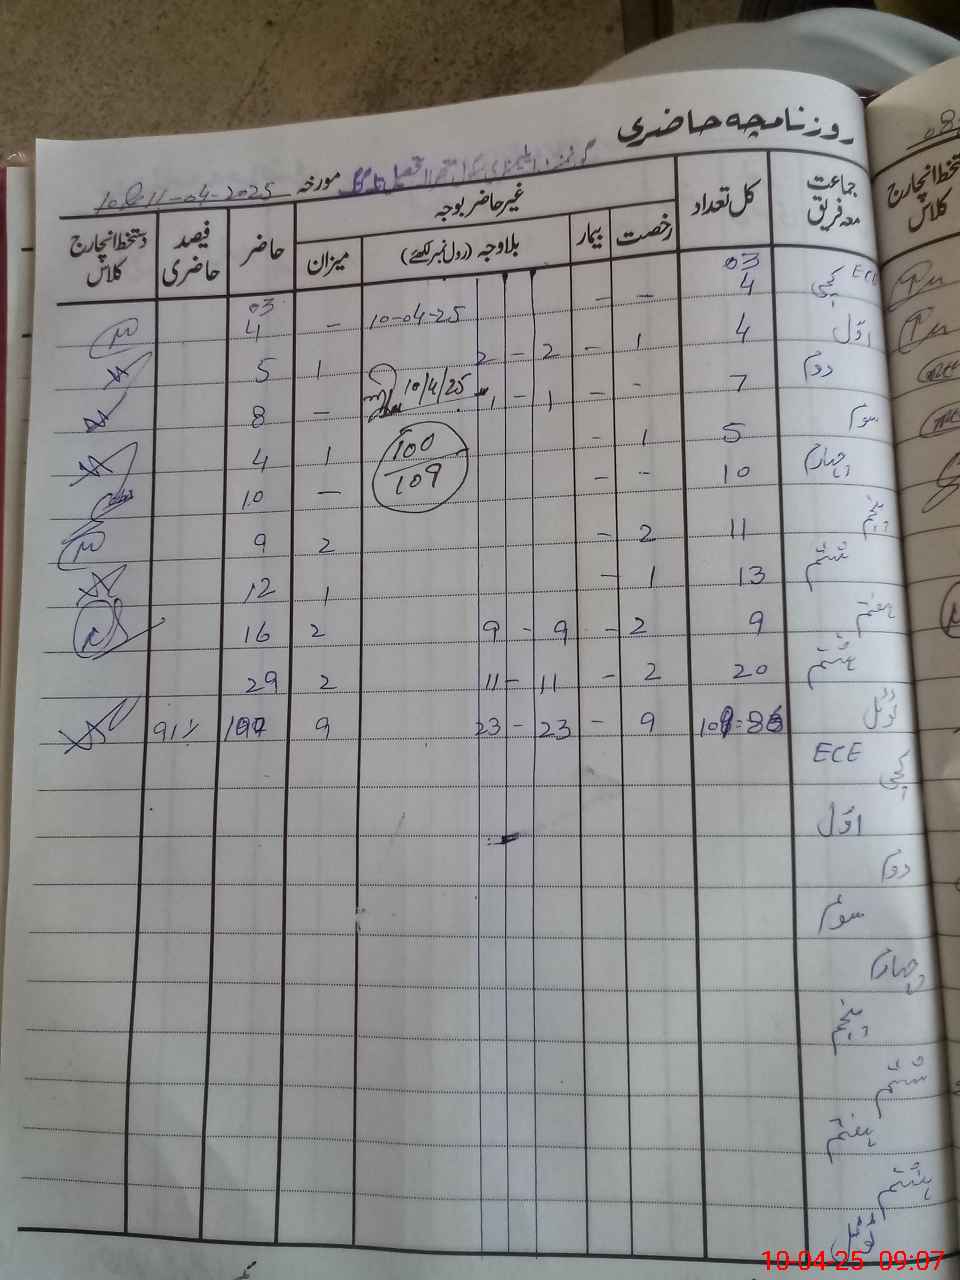 روزنامچہ حاضری
مورخہ 11-04-2025
جماعت معہ فریق کل تعداد غیر حاضر بوجہ حاضر فیصد حاضری دستخط انچارج کلاس
رخصت بیمار بلاوجہ (رول نمبر لکھئے) میزان
ECE کچی 03 03
4 - - 10-04-25 - 4
اوّل 4 1 - 2 - 2 1 5
دوم 7 - - 1 - 1 10/4/25 - 8
سوم 5 1 - 100/109 1 4
چہارم 10 - - - 10
پنجم 11 2 - 2 9
ششم 13 1 - 1 12
ہفتم 9 2 - 9 - 9 2 16
ہشتم 20 2 - 11 - 11 2 29
ٹوٹل 9 - 23 - 23 9 91%
ECE کچی
اوّل
دوم
سوم
چہارم
پنجم
ششم
ہفتم
ہشتم
ٹوٹل
دستخط انچارج کلاس
10-04-25 09:07